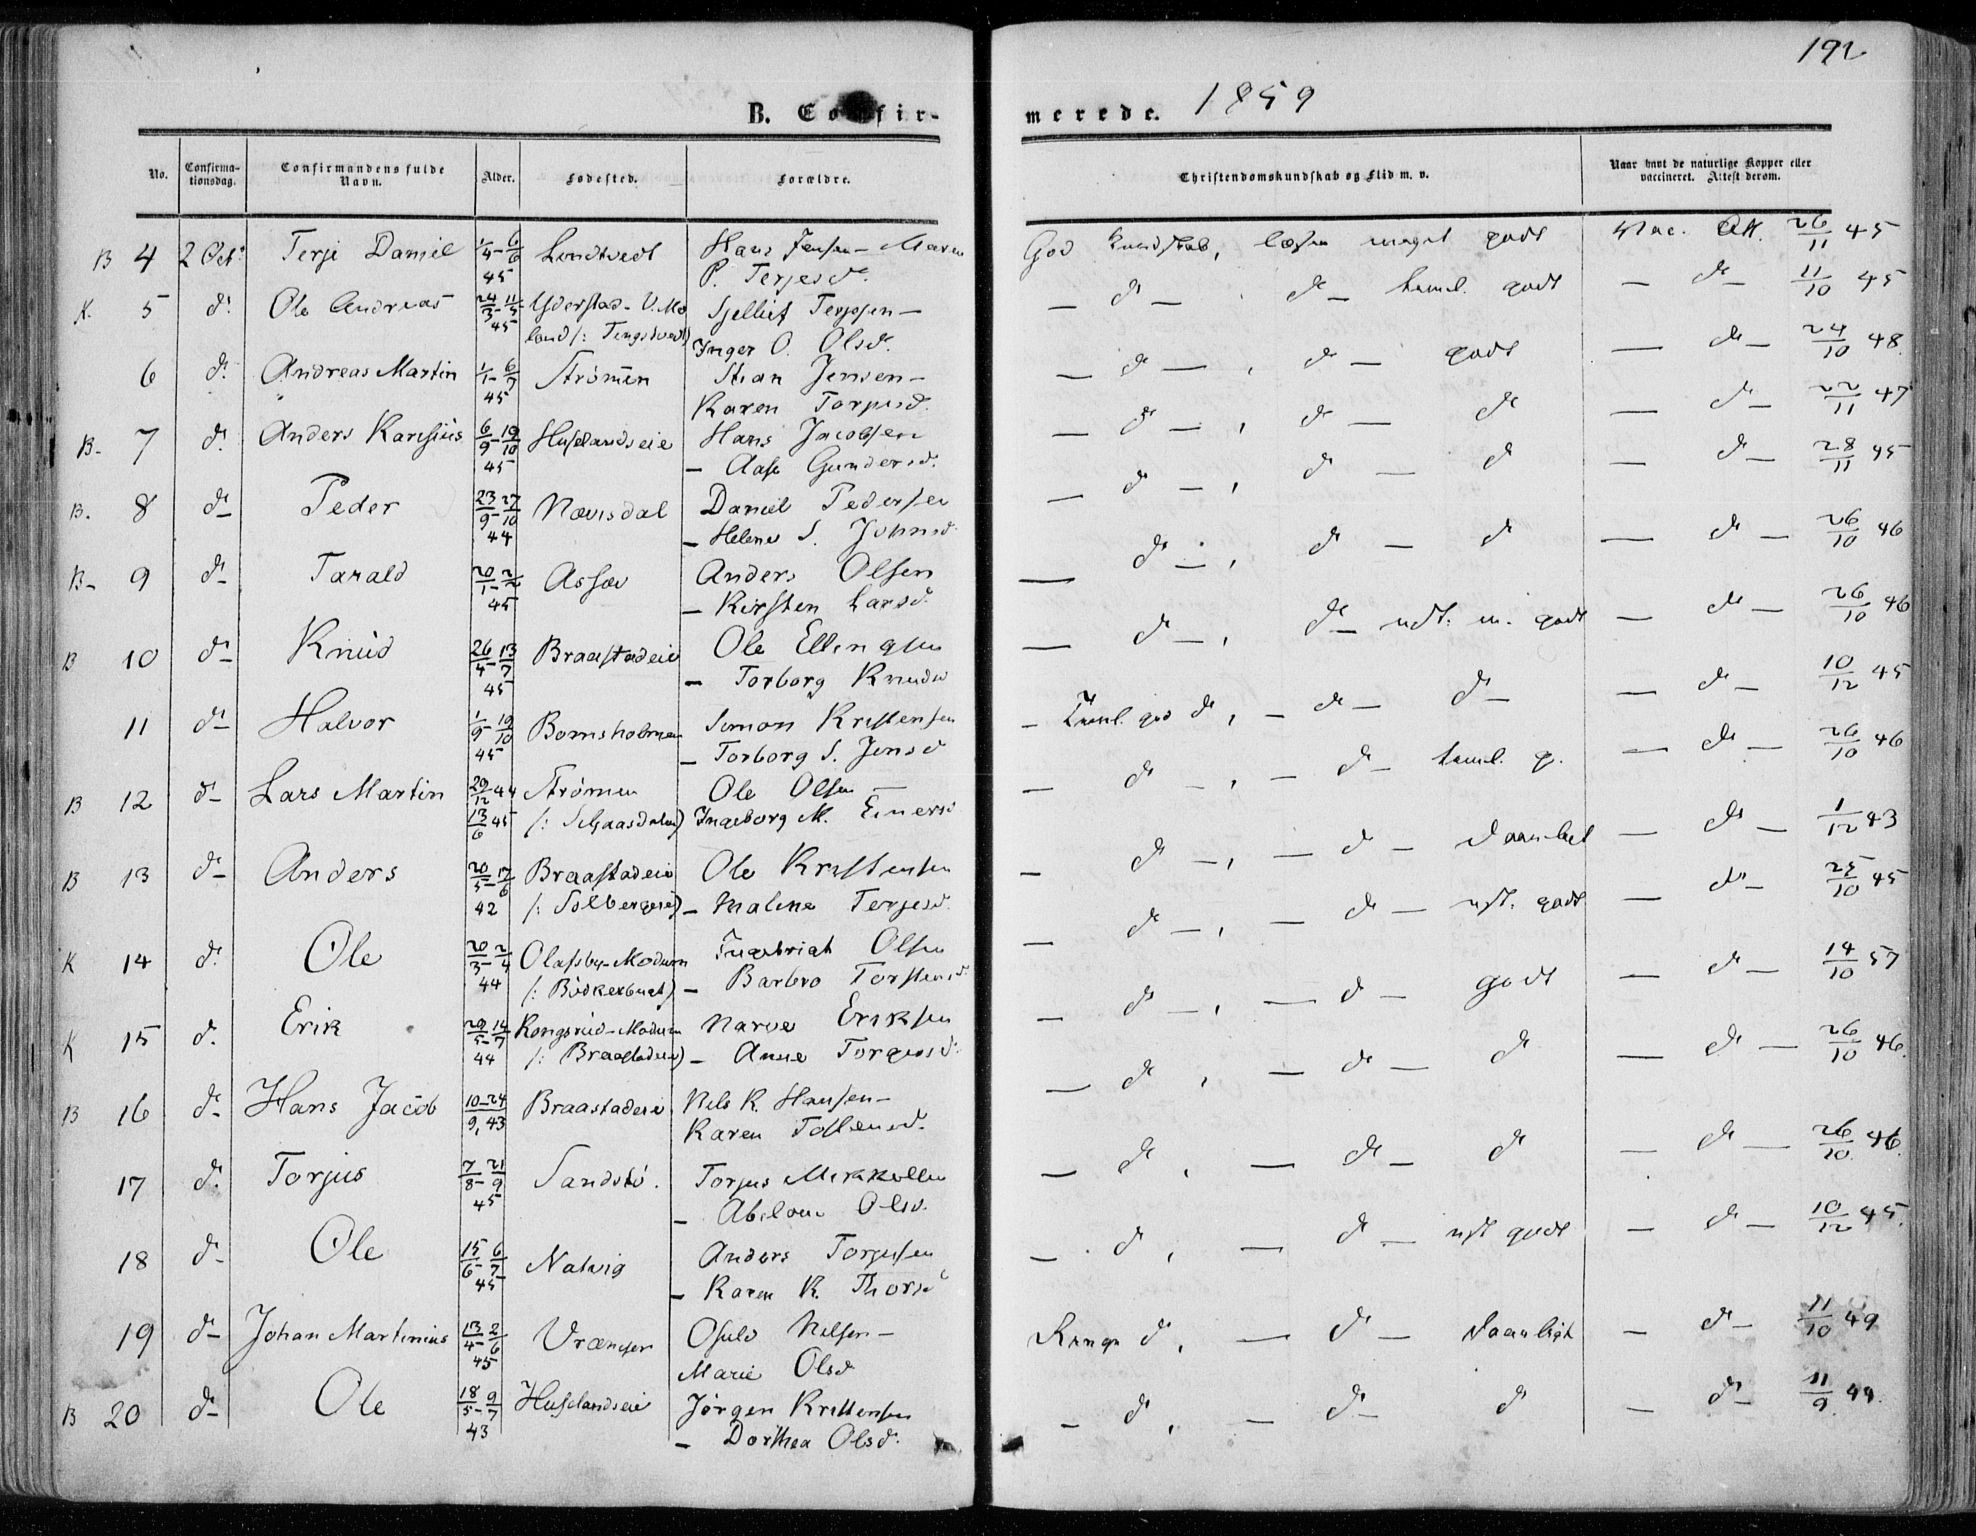 192
B. Confir-
merede. 1859
No.
Confirma-
tionsdag.
Confirmandens fulde
Navn.
Alder.
Fødested.
Forældre.
Christendomskundskab og Flid m. v.
Naar havt de naturlige Kopper eller
vaccineret. Attest derom.
B 4 2 Oct. Terje Daniel 1/4 - 6/6 45 Londtvedt Hans Jensen - Maren
P. Terjesd.
God Kundskab, læser meget godt Vac. Att. 26/11 45
K. 5 d. Ole Andreas 24/3 - 11/5 45 Yderstad - V. Mo
land /: Tingstvedt) Sjelluf Terjesen -
Inger O. Olsd.
- d - d - teml. godt - d - 11/10 45
6 d. Andreas Martin 1/1 - 6/7 45 Strømen Stian Jensen -
Karen Torjusd.
- d - , d - godt - d - 24/10 48
B - 7 d. Anders Karisius 6/9 - 19/10 45 Huselandseie Hans Jacobsen
- Aase Gundersd.
- d - , d - d - d - 22/11 47
B. 8 d - Peder 23/9 - 27/10 44 Nævisdal Daniel Pedersen
- Helene S. Johnsd.
- d - , d - d - d - 28/11 45
B - 9 d - Tarald 20/1 - 2/2 45 Assæv Anders Olsen
- Kirsten Larsd.
- d - , d - d - d - 26/10 46
B 10 d - Knud 26/4 - 13/7 45 Braastadeie Ole Ellingsen
- Torborg Knudsd
- d - , d - udt. m. godt - d - 26/10 46
11 d - Halvor 1/9 - 19/10 45 Bomsholmen Simon Kristensen
- Torborg S. Jensd
- Teml. god d , - d - d - - d - 10/12 45
B 12 d - Lars Martin 29/12 44 13/6 45 Strømen
/: Selgaasdalen) Ole Olsen -
Ingeborg M. Einersd
- d - , - d - teml. g. - d - 26/10 46
B 13 d - Anders 20/5 - 17/6 42 Braastadeie
/: Solbergeie) Ole Kristensen
- Maline Terjesd.
- d - , - d - daarligt - d - 1/12 43
K 14 d. Ole 20/3 - 2/4 44 Olafsby - Modum
/: Bödkerbugt) Ingebrigt Olsen
- Barbro Torstensd.
- d - , - d - udt. godt - d - 25/10 45
K 15 d. Erik 29/5 - 14/7 44 Kongsrud - Modum
/: Braastadeie) Narve Eriksen
- Anne Torgersd.
- d - , - d - godt - d - 14/10 57
B 16 d - Hans Jacob 10-24/9, 43 Braastadeie Nils K. Hansen -
Karen Tostensd.
- d , - d - d - d - 26/10 46.
17 d. Torjus 7/8 - 21/9 45 Sandstö. Torjus Mikkelsen
- Abelone Olsd.
- d , - d - d - d - 26/10 46.
18 d - Ole 15/6 - 6/7 45 Natvig Anders Torjusen
- Karen K. Thorsd
- d , - d - udt godt - d - 10/12 45.
19 d - Johan Martinius 13/4 - 2/6 45 Vrænger Osuld Nilsen -
Marie Olsd
Ringe d , - d - daarligt - d - 11/10 49
B 20 d - Ole 18/5 - 9/7 43 Huselandseie Jörgen Kristensen
- Dorthea Olsd.
- d , - d - d - d - 11/9 44.